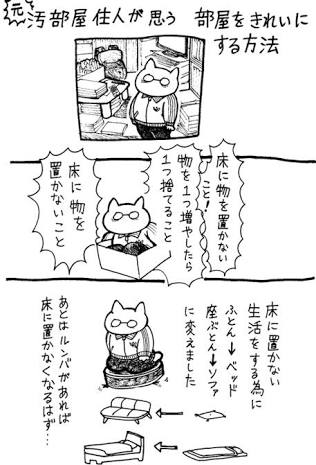 元
汚部屋住人が思う 部屋をきれいに
する方法
床に物を置かない
こと!
物を1つ増やしたら
1つ捨てること
床に物を
置かないこと
床に置かない
生活をする為に
ふとん→ベッド
座ぶとん→ソファ
に変えました
あとはルンバがあれば
床に置かなくなるはず…